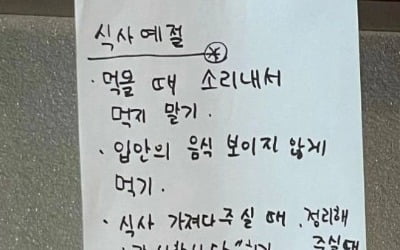 식사예절
· 먹을 때 소리내서
먹지 말기.
· 입안의 음식 보이지 않게
먹기.
· 식사 가져다주실 때, 정리해
주실때